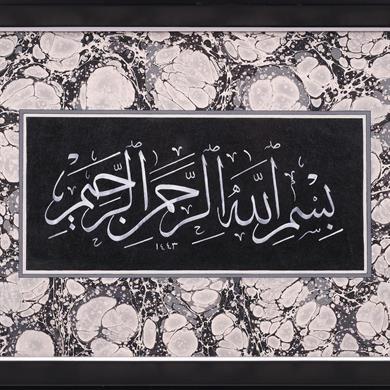 بسم الله الرحمن الرحيم
١٤٤٣